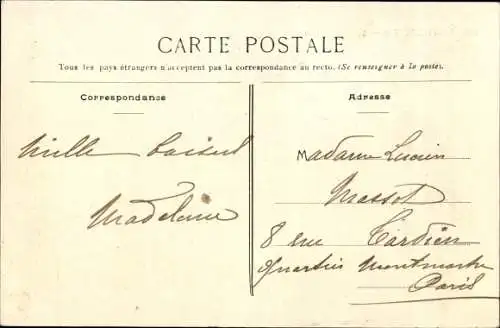 CARTE POSTALE
Tous les pays étrangers n'acceptent pas la correspondance au recto. (Se renseigner à la poste).
Correspondance
Adresse
Mille baisers
Madeleine
Madame Lucien
Massot
8 rue Tardieu
Quartier Montmartre
Paris